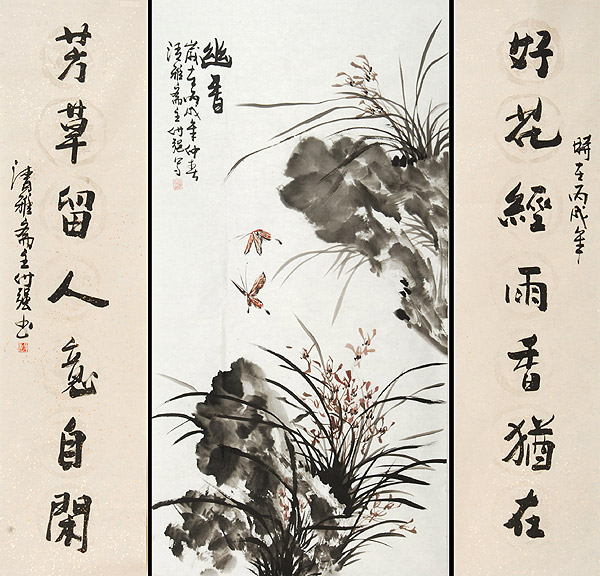 好花經雨香猶在
時在丙戌年
幽香
歲在丙戌年仲春
清雅齋主
芳草留人意自閑
清雅齋主